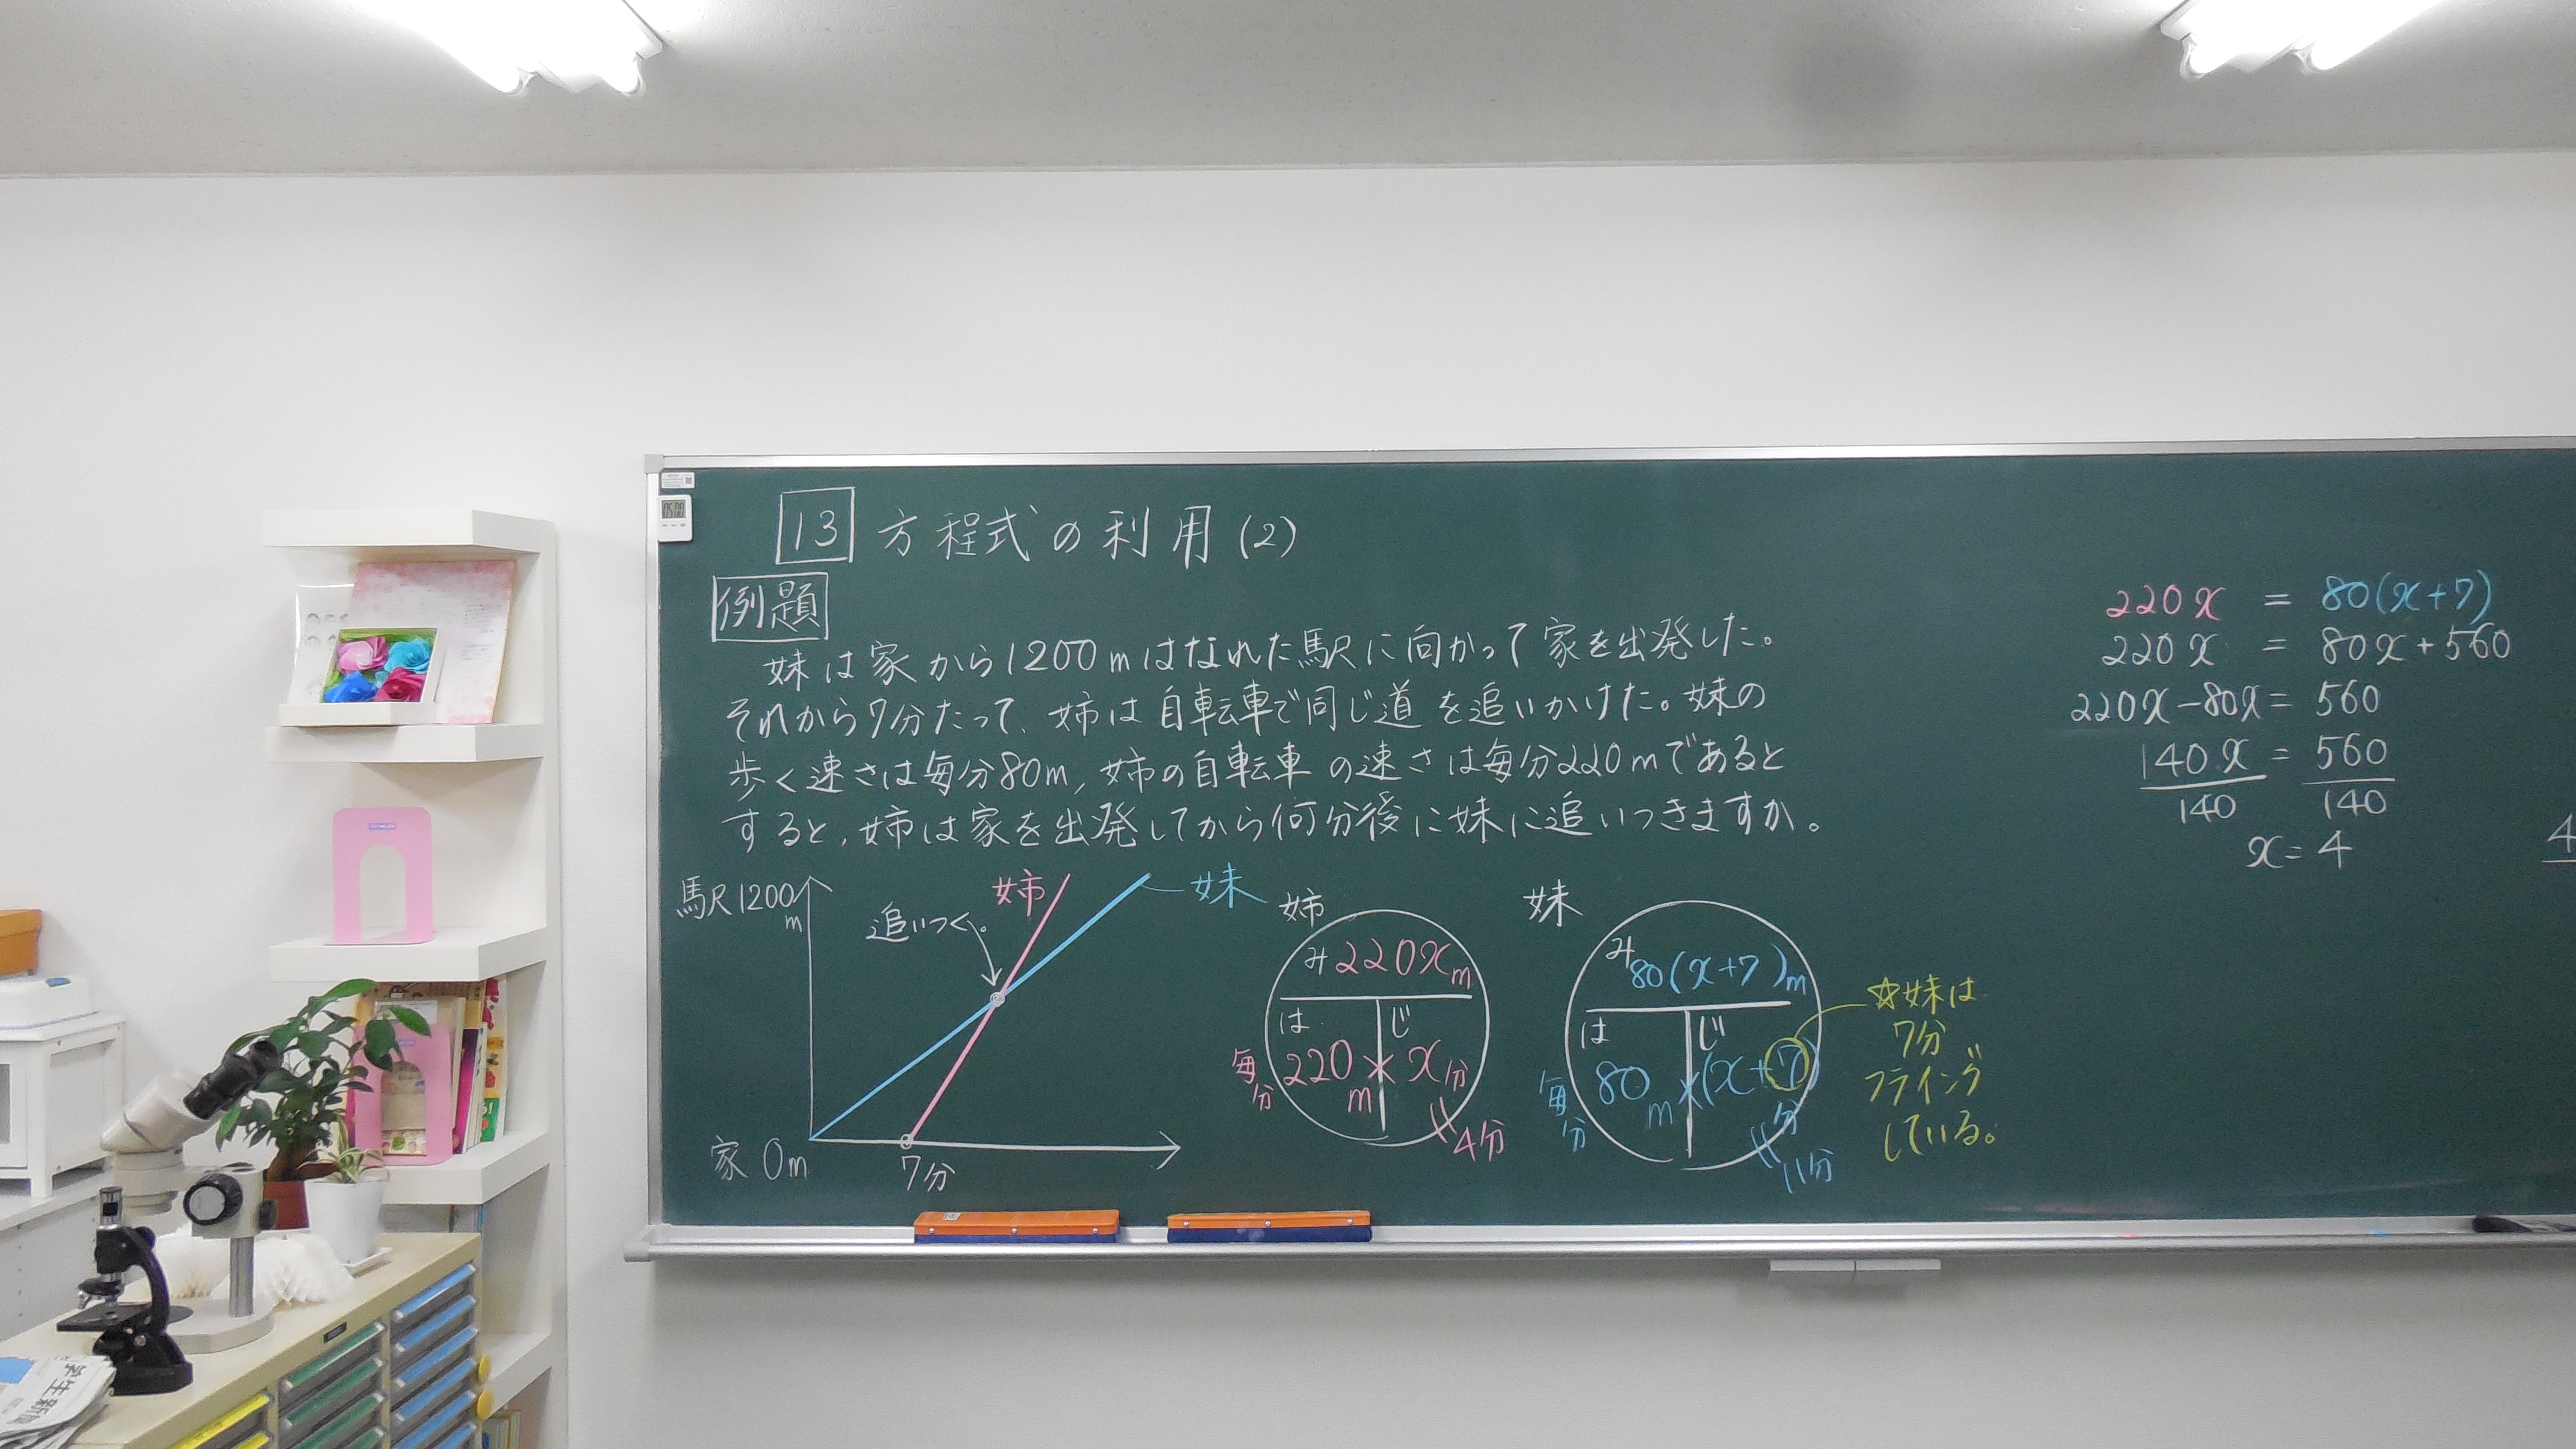 13 方程式の利用(2)
例題
妹は家から1200mはなれた駅に向かって家を出発した。
それから7分たって、姉は自転車で同じ道を追いかけた。妹の
歩く速さは毎分80m,姉の自転車の速さは毎分220mであると
すると,姉は家を出発してから何分後に妹に追いつきますか。
駅1200m
追いつく。
姉
妹
家 0m
7分
姉
み220xm
は じ
毎分220m×x分
4分
妹
み80(x+7)m
は じ
毎分80m×(x+7)分
11分
☆妹は
7分
フライング
している。
220x = 80(x+7)
220x = 80x+560
220x-80x= 560
140x = 560
140 140
x=4
4
学生新聞